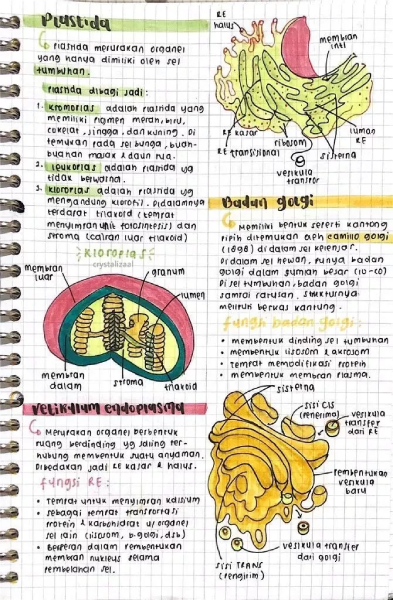 Plastida
Plastida merupakan organel
yang hanya dimiliki oleh sel
tumbuhan.
Plastida dibagi jadi:
1. kromoplas adalah plastida yang
memiliki pigmen merah, biru,
cokelat, jingga, dan kuning. Di
temukan pada sel bunga, buah-
buahan masak & daun tua.
2. leukoplas adalah plastida yg
tidak berwarna.
3. kloroplas adalah plastida yg
mengandung klorofil. Didalamnya
terdapat tilakoid (tempat
menyimpan unit fotosintesis) dan
stroma (cairan luar tilakoid)
kloroplas
crystalizaal
membran
luar
granum
lumen
membran
dalam
stroma
tilakoid
Retikulum endoplasma
Merupakan organel berbentuk
ruang berdinding yg saling ter-
hubung membentuk suatu anyaman.
Dibedakan jadi RE kasar & halus.
fungsi RE:
• Tempat untuk menyimpan kalsium
• sebagai tempat transportasi
protein & karbohidrat u/ organel
sel lain (lisosom, b-golgi, dsb)
• Berperan dalam pembentukan
membran nukleus selama
pembelahan sel.
RE
halus
membran
inti
RE kasar
RE transisional
ribosom
lumen
RE
sisterna
vesikula
transpor
Badan golgi
Memiliki bentuk seperti kantong
pipih ditemukan oleh camillo golgi
(1898) di dalam sel kelenjar.
Di dalam sel hewan, punya badan
golgi dalam jumlah besar (10-20)
Di sel tumbuhan, badan golgi
sampai ratusan, strukturnya
meliputi berkas kantung.
fungsi badan golgi:
• membentuk dinding sel tumbuhan
• membentuk lisosom & akrosom
• tempat memodifikasi protein
• membentuk membran plasma.
sisterna
sisi CIS
(penerima)
vesikula
transfer
dari RE
pembentukan
vesikula
baru
vesikula transfer
dari golgi
sisi TRANS
(pengirim)